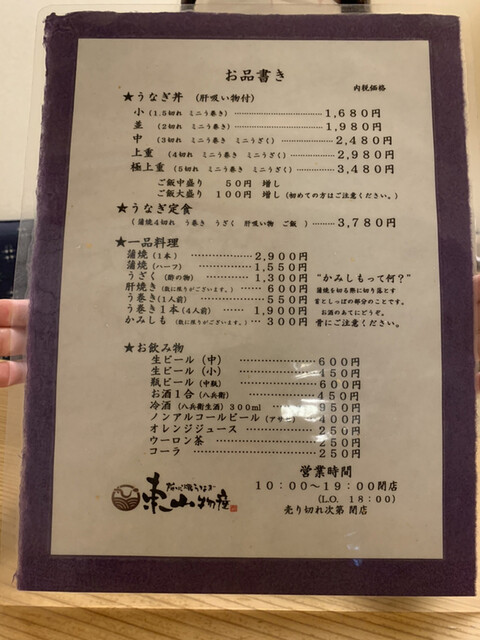 お品書き
内税価格
★うなぎ丼 (肝吸い物付)
小 (1.5切れ ミニう巻き) 1,680円
並 (2切れ ミニう巻き) 1,980円
中 (3切れ ミニう巻き ミニうざく) 2,480円
上重 (4切れ ミニう巻き ミニうざく) 2,980円
極上重 (5切れ ミニう巻き ミニうざく) 3,480円
ご飯中盛り 50円 増し
ご飯大盛り 100円 増し (初めての方はご注意ください。)
★うなぎ定食
(蒲焼4切れ う巻き うざく 肝吸い物 ご飯 ) 3,780円
★一品料理
蒲焼 (1本) 2,900円
蒲焼 (ハーフ) 1,550円
うざく (酢の物) 1,300円
肝焼き (数に限りがございます。) 600円
う巻き (1人前) 550円
う巻き1本 (4人前) 1,900円
かみしも (数に限りがございます。) 300円
"かみしもって何？"
蒲焼を切る際に切り落とす
首としっぽの部分のことです。
お酒のあてにどうぞ。
骨にご注意ください。
★お飲み物
生ビール (中) 600円
生ビール (小) 450円
瓶ビール (中瓶) 600円
お酒1合 (八兵衛) 450円
冷酒 (八兵衛生酒) 300ml 950円
ノンアルコールビール (アサヒ) 400円
オレンジジュース 250円
ウーロン茶 250円
コーラ 250円
営業時間
10:00〜19:00閉店
(L.O. 18:00)
売り切れ次第 閉店
東山物産